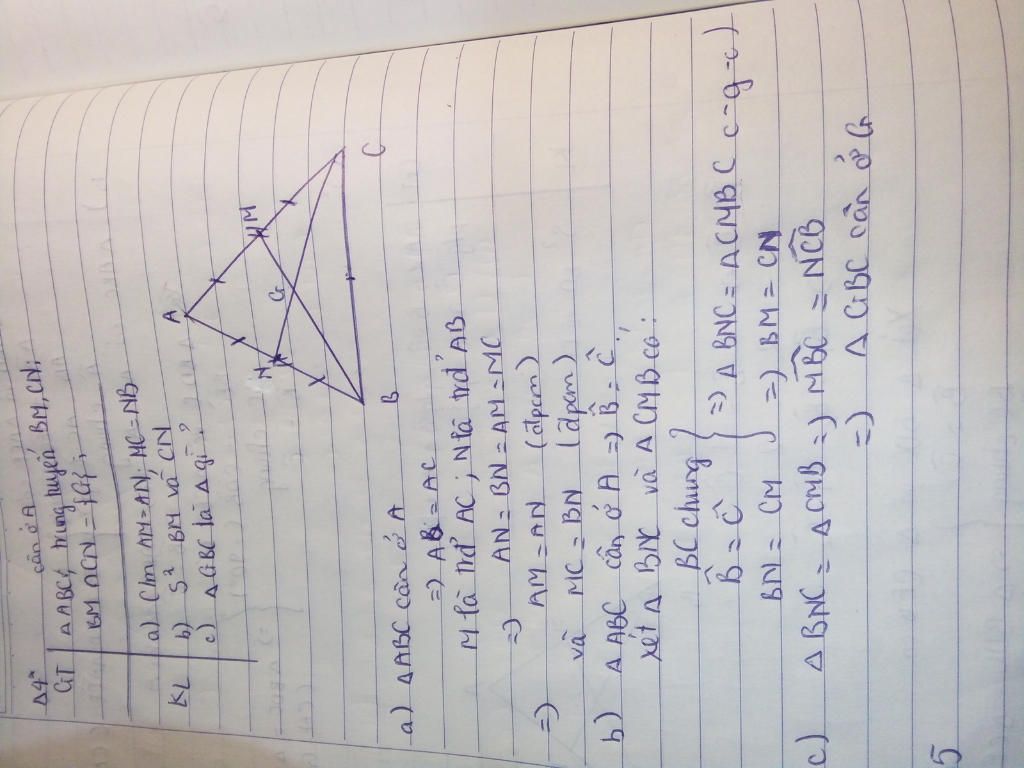 Δ4"
GT ΔABC cân ở A, trung tuyến BM, CN;
BM ∩ CN = {G};
KL a) Cm AM = AN; MC = NB
b) S² BM và CN
c) ΔGBC là Δ gì?
A
N M
G
B C
a) ΔABC cân ở A
=> AB = AC
M là trđ' AC; N là trđ' AB
=> AN = BN = AM = MC
=> AM = AN (đpcm)
và MC = BN (đpcm)
b) ΔABC cân ở A => B̂ = Ĉ
xét Δ BNC và Δ CMB có:
BC chung
B̂ = Ĉ => Δ BNC = Δ CMB C c-g-c)
BN = CM => BM = CN
c) Δ BNC = Δ CMB => M̂BC = N̂CB
=> Δ GBC cân ở G
5